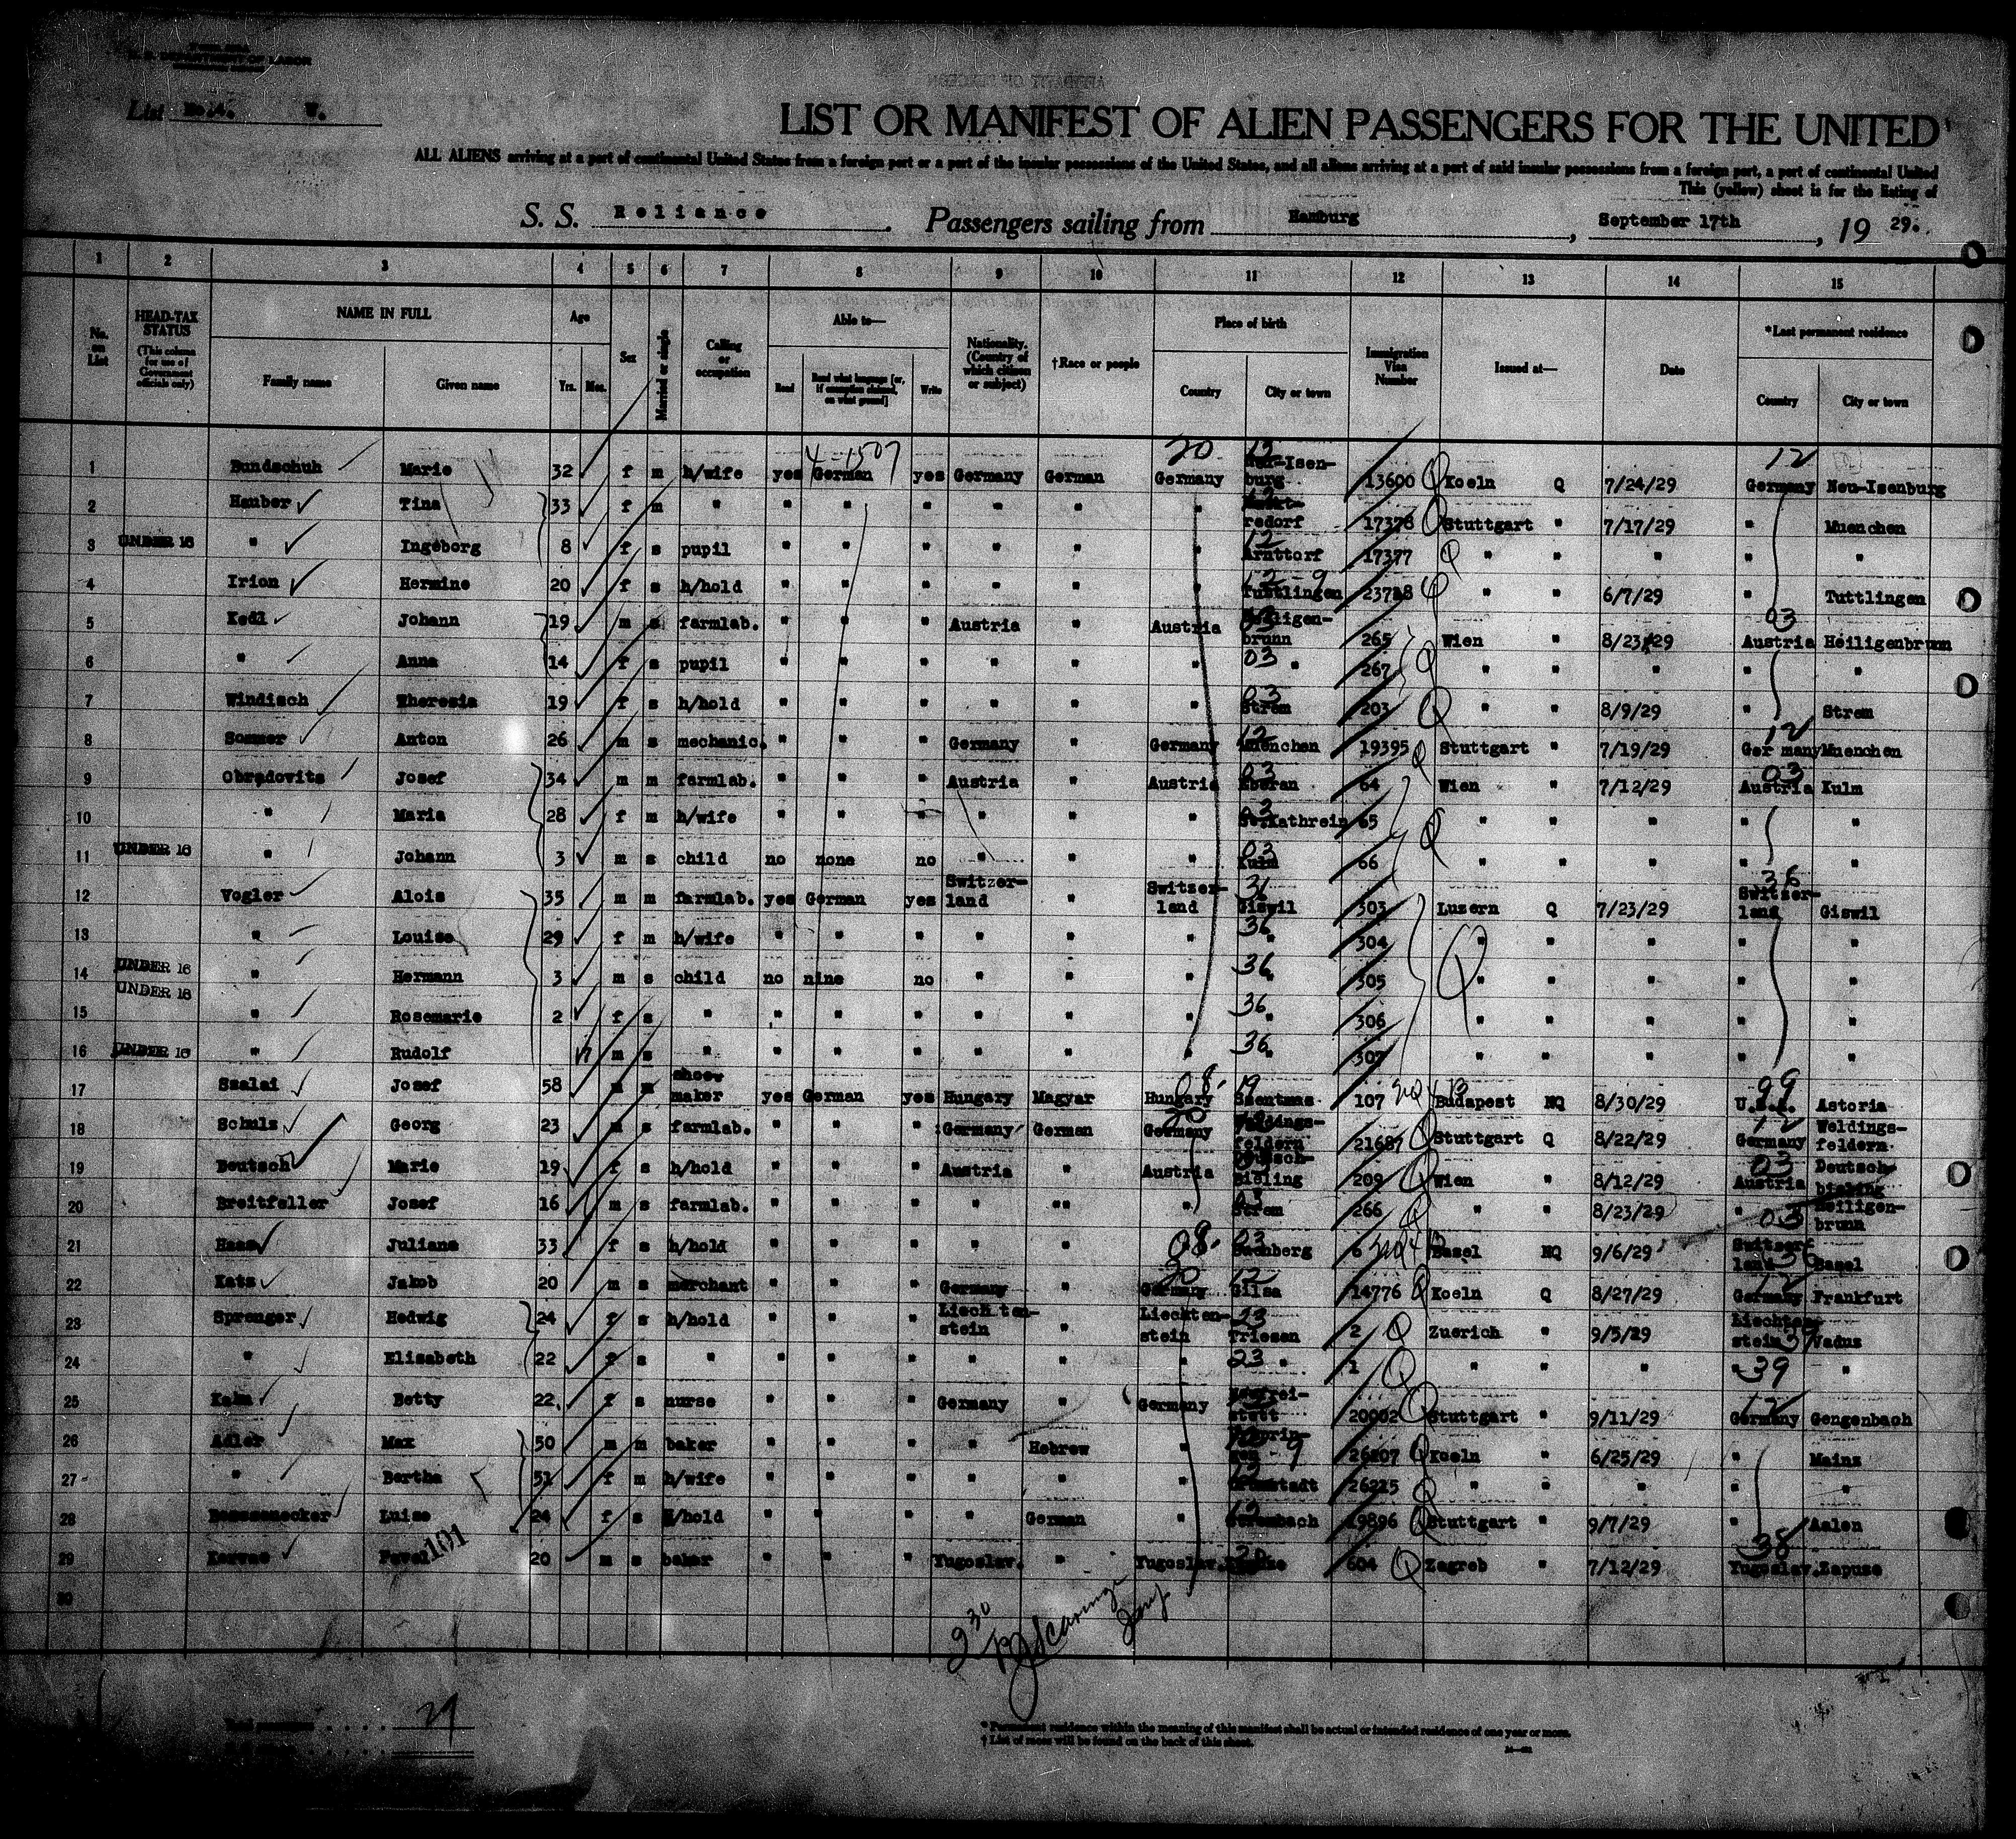 U. S. DEPARTMENT OF LABOR
List No. 4. W.
LIST OR MANIFEST OF ALIEN PASSENGERS FOR THE UNITED
ALL ALIENS arriving at a port of continental United States from a foreign port or a port of the insular possessions of the United States, and all aliens arriving at a port of said insular possessions from a foreign port, a port of continental United
This (yellow) sheet is for the listing of
S. S. Reliance. Passengers sailing from Hamburg, September 17th, 1929.
1 2 3 4 5 6 7 8 9 10 11 12 13 14 15
No. on List
HEAD-TAX STATUS (This column for use of Government officials only)
NAME IN FULL
Family name Given name
Age Yrs. Mos.
Sex
Married or single
Calling or occupation
Able to—
Read Read what language [or, if exemption claimed, on what ground] Write
Nationality. (Country of which citizen or subject)
†Race or people
Place of birth
Country City or town
Immigration Visa Number
Issued at—
Date
*Last permanent residence
Country City or town
4-1507 20 12
1 Bundschuh Marie 32 f m h/wife yes German yes Germany German Germany Neu-Isen-burg 13600 Q Koeln Q 7/24/29 Germany Neu-Isenburg
2 Hauber Tina 33 f m " " " " " " " redorf 17376 Q Stuttgart " 7/17/29 " Muenchen
3 UNDER 16 " Ingeborg 8 f s pupil " " " " " " 12 Arnttorf 17377 Q " " " " "
4 Irion Hermine 20 f s h/hold " " " " " " 12-9 Tuttlingen 23728 Q " " 6/7/29 " Tuttlingen
5 Kedl Johann 19 m s farmlab. " " " Austria " Austria 03 Heiligen-brunn 265 Wien " 8/23/29 03 Austria Heiligenbrunn
6 " Anna 14 f s pupil " " " " " " 03 " 267 Q " " " " "
7 Windisch Theresia 19 f s h/hold " " " " " " 03 Strem 203 Q " " 8/9/29 " Strem
8 Sommer Anton 26 m s mechanic. " " " Germany " Germany 12 Muenchen 19395 Q Stuttgart " 7/19/29 12 Germany Muenchen
9 Obradovits Josef 34 m m farmlab. " " " Austria " Austria 03 Eberau 64 Wien " 7/12/29 03 Austria Kulm
10 " Maria 28 f m h/wife " " " " " " 03 St.Kathrein 65 Q " " " " "
11 UNDER 16 " Johann 3 m s child no none no " " " 03 Kulm 66 " " " " "
12 Vogler Alois 35 m m farmlab. yes German yes Switzer-land " Switzer-land 36 Giswil 303 Luzern Q 7/23/29 36 Switzer-land Giswil
13 " Louise 29 f m h/wife " " " " " " 36 " 304 " " " " "
14 UNDER 16 " Hermann 3 m s child no nine no " " " 36 " 305 Q " " " " "
15 UNDER 16 " Rosemarie 2 f s " " " " " " " 36 " 306 " " " " "
16 UNDER 16 " Rudolf m s " " " " " " " 36 " 307 " " " " "
17 Szalai Josef 58 m m shoe-maker yes German yes Hungary Magyar 08. Hungary 19 Szentmas 107 NQ Budapest NQ 8/30/29 99 U.S.A. Astoria
18 Schulz Georg 23 m s farmlab. " " " Germany German 20 Germany Weldings-feldern 21687 Q Stuttgart Q 8/22/29 12 Germany Weldings-feldern
19 Deutsch Marie 19 f s h/hold " " " Austria " Austria Deutsch-Bieling 209 Q Wien " 8/12/29 03 Austria Deutsch-bieling
20 Breitfeller Josef 16 m s farmlab. " " " " "" " 03 Strem 266 Q " " 8/23/29 " 03 Heiligen-brunn
21 Haas Juliane 33 f s h/hold " " " " " 08. 03 Buchberg 6 NQ Basel NQ 9/6/29 Switzer-land 36 Basel
22 Katz Jakob 20 m s merchant " " " Germany " 20 Germany 12 Gilsa 14776 Q Koeln Q 8/27/29 12 Germany Frankfurt
23 Sprenger Hedwig 24 f s h/hold " " " Liechten-stein " Liechten-stein 23 Triesen 2 Q Zuerich " 9/5/29 Liechten-stein Vadus
24 " Elisabeth 22 f s " " " " " " " 23 " 1 Q " " " 39 "
25 Kahn Betty 22. f s nurse " " " Germany " Germany 20002 Q Stuttgart " 9/11/29 12 Germany Gengenbach
26 Adler Max 50 m m baker " " " " Hebrew " 9 26207 Q Koeln " 6/25/29 " Mainz
27 " Bertha 51 f m h/wife " " " " " " 26215 Q " " " " "
28 Luise 24 f s H/hold " " " " German " 19896 Q Stuttgart " 9/7/29 " Aalen
29 101 20 m s baker " " " Yugoslav. " Yugoslav. 604 Q Zagreb " 7/12/29 38 Yugoslav. Zapuze
30
230
29
* Permanent residence within the meaning of this manifest shall be actual or intended residence of one year or more.
† List of races will be found on the back of this sheet.